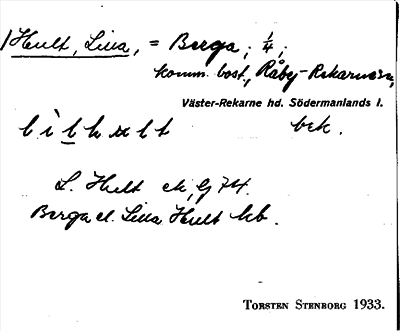 Hult, Lilla, = Berga, ¼,
komm. bost., Råby-Rekarne sn,
Väster-Rekarne hd. Södermanlands l.
bek.
L. Hult ek, G 74.
Berga el. Lilla Hult kb.
TORSTEN STENBORG 1933.